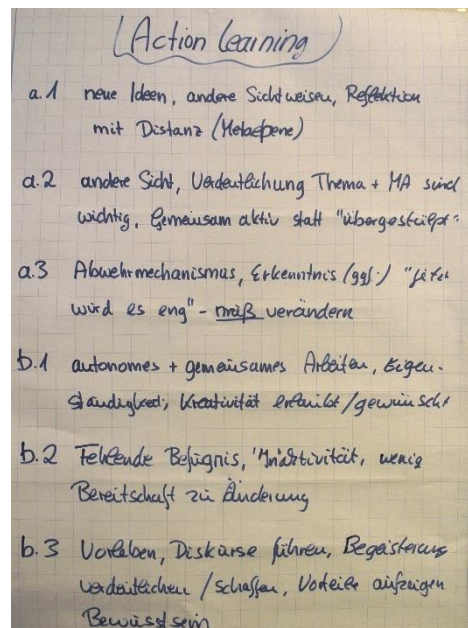 Action learning
a.1 neue Ideen, andere Sichtweisen, Reflektion
mit Distanz (Metaebene)
a.2 andere Sicht, Verdeutlichung Thema + MA sind
wichtig, Gemeinsam aktiv statt "übergestülpt"
a.3 Abwehrmechanismus, Erkenntnis (ggf.) "jetzt
wird es eng" - muß verändern
b.1 autonomes + gemeinsames Arbeiten, Eigen-
ständigkeit, Kreativität erlaubt/gewünscht
b.2 Fehlende Befugnis, "Inaktivität, wenig
Bereitschaft zu Änderung
b.3 Vorleben, Diskurse führen, Begeisterung
verdeutlichen / schaffen, Vorteile aufzeigen
Bewusstsein